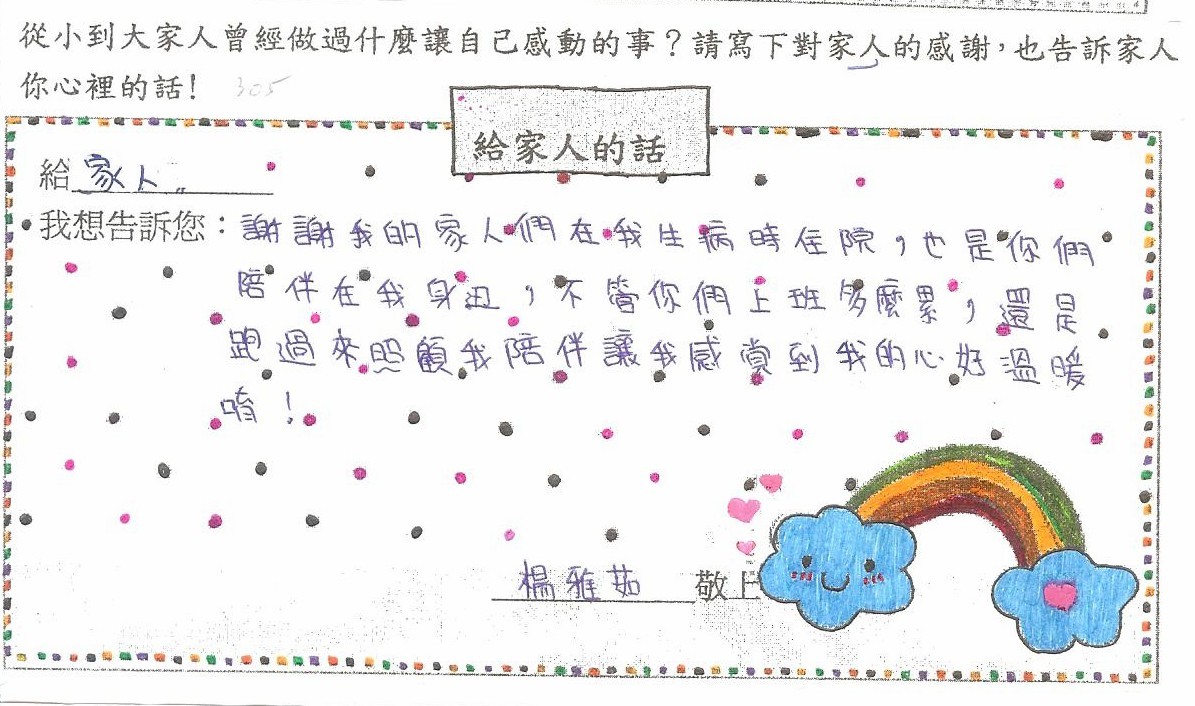 從小到大家人曾經做過什麼讓自己感動的事?請寫下對家人的感謝,也告訴家人
你心裡的話!  305
給家人的話
給 家人
我想告訴您:謝謝我的家人們在我生病時住院,也是你們
陪伴在我身边,不管你們上班多麼累,還是
跑過來照顧我陪伴讓我感賞到我的心好溫暖
唷!
楊雅茹 敬上